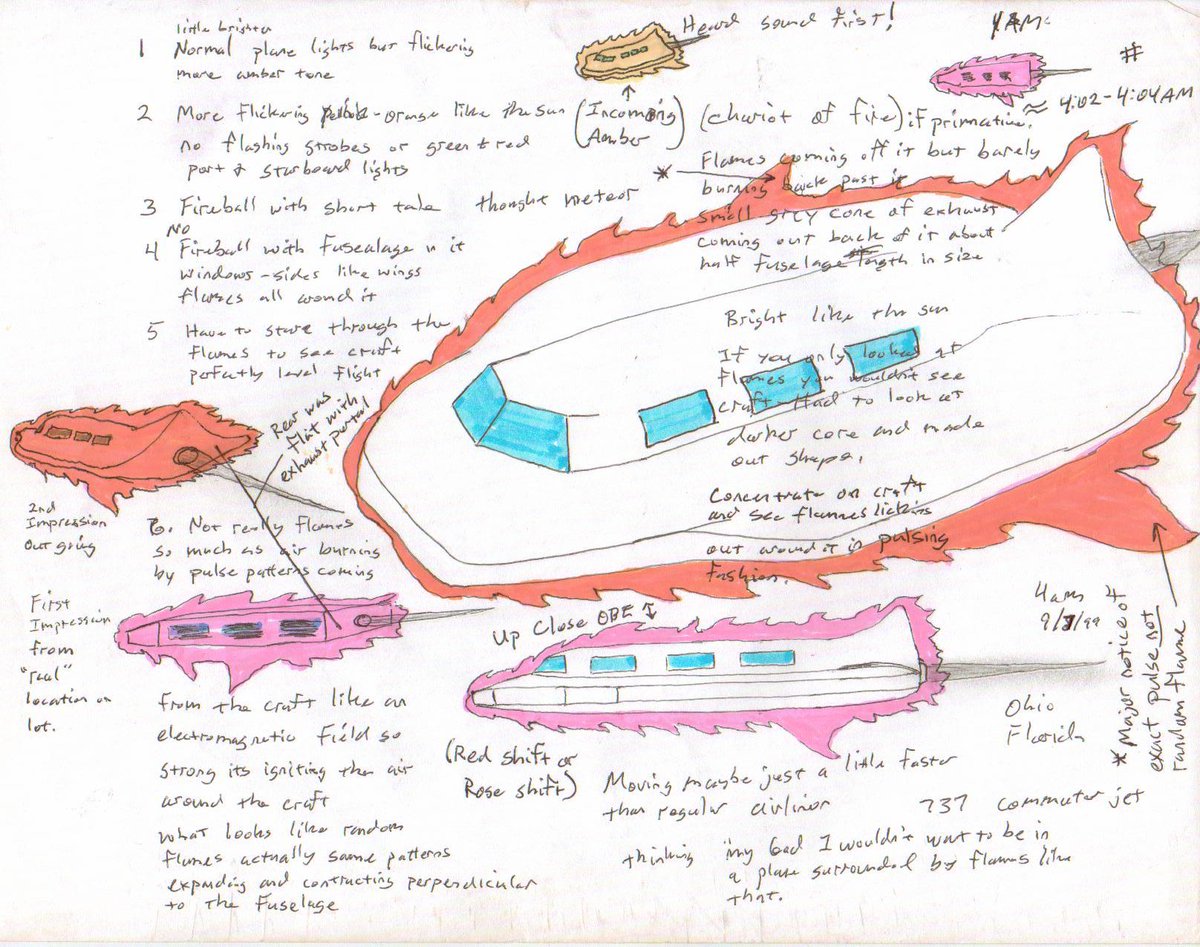 little brighter
1 Normal plane lights but flickering
more amber tone
Heard sound first!
4AM.
#
≈ 4:02-4:04AM
2 More flickering -orange like the sun
no flashing strobes or green & red
port & starboard lights
(Incoming
Amber)
(chariot of fire) if primative.
*
Flames coming off it but barely
burning back past it
small grey cone of exhaust
coming out back of it about
half fuselage length in size
3 Fireball with short tale thought meteor
No
4 Fireball with fusealage in it
windows-sides like wings
flames all around it
5 Have to stare through the
flames to see craft
perfectly level flight
Bright like the sun
If you only looked at
flames you wouldn't see
craft. Had to look at
darker core and made
out shape.
Concentrate on craft
and see flames licking
out around it in pulsing
fashion.
Rear was
flat with
exhaust portal
2nd
Impression
Out going
6. Not really flames
so much as air burning
by pulse patterns coming
First
Impression
from
"real"
location on
lot.
from the craft like an
electromagnetic field so
strong its igniting the air
around the craft
what looks like random
flames actually same patterns
expanding and contracting perpendicular
to the fuselage
Up Close OBE
(Red shift or
Rose shift)
4am
9/7/99
Ohio
Florida
* Major notice of
exact pulse not
random flame
Moving maybe just a little faster
than regular airliner
737 commuter jet
thinking "my God I wouldn't want to be in
a plane surrounded by flames like
that.